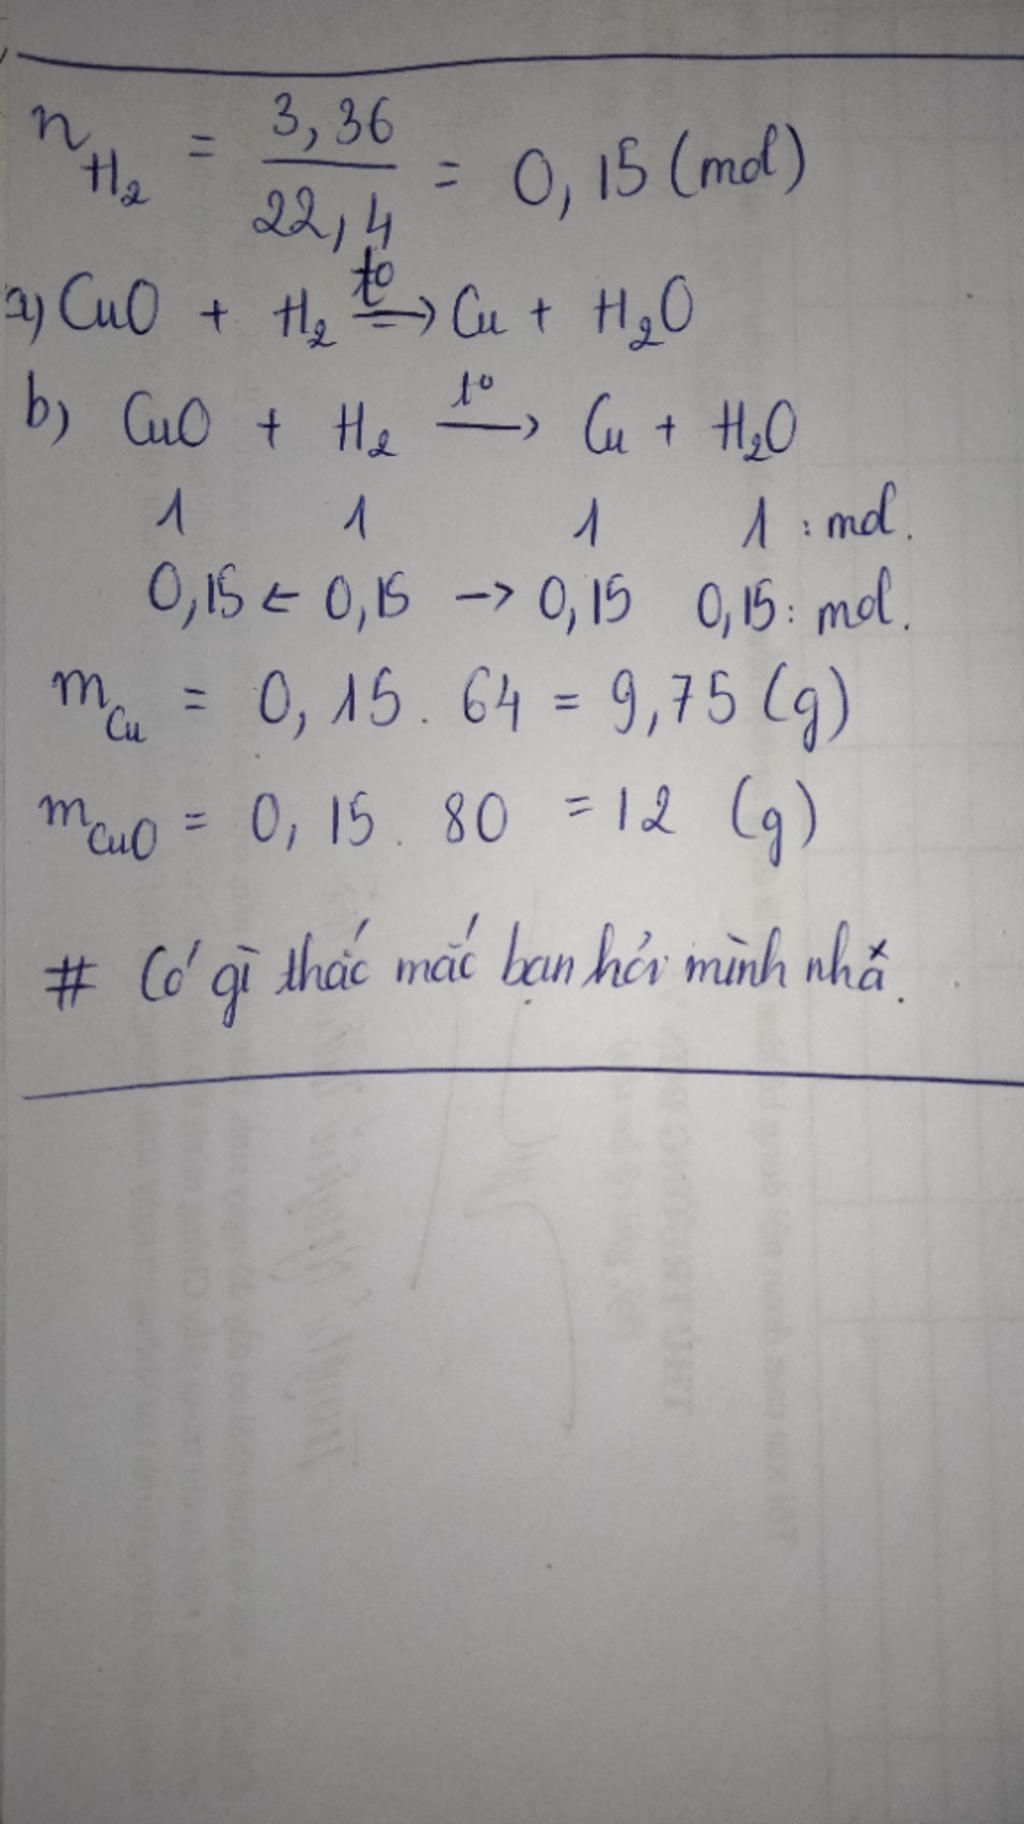 n H₂ = 3,36 / 22,4 = 0,15 (mol)
a) CuO + H₂ t° → Cu + H₂O
b) CuO + H₂ t° → Cu + H₂O
1 1 1 1 : mol.
0,15 ← 0,15 → 0,15 0,15 : mol.
m Cu = 0,15 . 64 = 9,75 (g)
m CuO = 0,15 . 80 = 12 (g)
# Có gì thắc mắc bạn hỏi mình nhá.